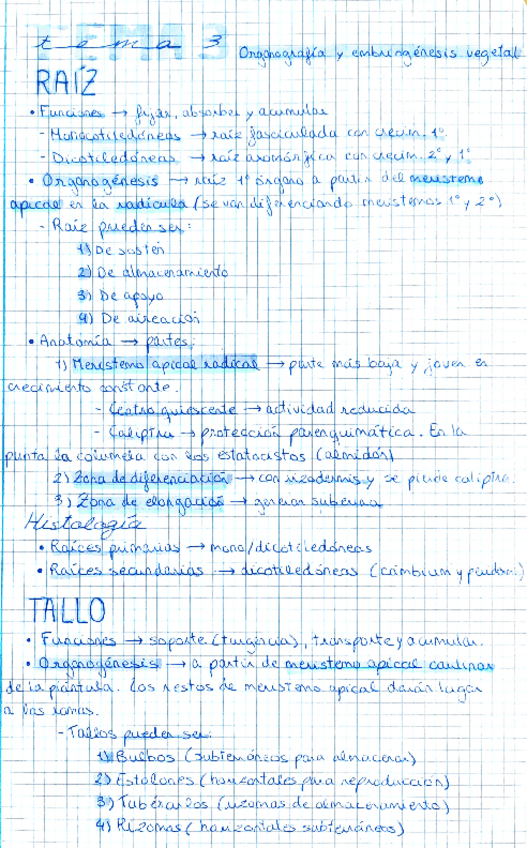 tema 3 Organografía y embriogénesis vegetal
RAÍZ
• Funciones → fijar, absorber y acumular
- Monocotiledóneas → raíz fasciculada con crecim. 1º
- Dicotiledóneas → raíz axonómorfica con crecim. 2º y 1º
• Organogénesis → raíz 1º órgano a partir del meristemo
apical en la radícula (se van diferenciando meristemos 1º y 2º)
- Raíz pueden ser:
1) De sostén
2) De almacenamiento
3) De apoyo
4) De aireación
• Anatomía → partes:
1) Meristemo apical radical → parte más baja y joven en
crecimiento constante.
- Centro quiescente → actividad reducida
- Caliptra → protección parenquimática. En la
punta la columela con los estatocistos (almidón)
2) Zona de diferenciación → con rizodermis y se pierde caliptra.
3) Zona de elongación → generan suberina
Histología
• Raíces primarias → mono/dicotiledóneas
• Raíces secundarias → dicotiledóneas (cámbium y periderm.)
TALLO
• Funciones → soporte (turgencia), transporte y acumular.
• Organogénesis → a partir de meristemo apical caulinar
de la plántula. Los restos de meristemo apical darán lugar
a las ramas.
- Tallos pueden ser:
1) Bulbos (subterráneos para almacenar)
2) Estolones (horizontales para reproducción)
3) Tubérculos (rizomas de almacenamiento)
4) Rizomas (horizontales subterráneos)